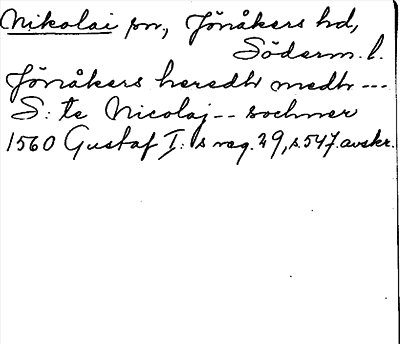 Nikolai sn, Jönåkers hd,
Söderm. l.
Jönåkers heredh medh ---
S:te Nicolaj -- sochner
1560 Gustaf I:s reg. 29, s. 547. avskr.